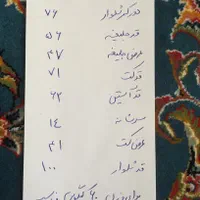 دور کمر شلوار ۷۶
قد جلیقه ۵۶
عرض جلیقه ۴۷
قد کت ۷۱
قد آستین ۶۲
سرشانه ۱۴
عرض کت ۴۱
قد شلوار ۱۰۰
برای وزن ۶۰ کیلو